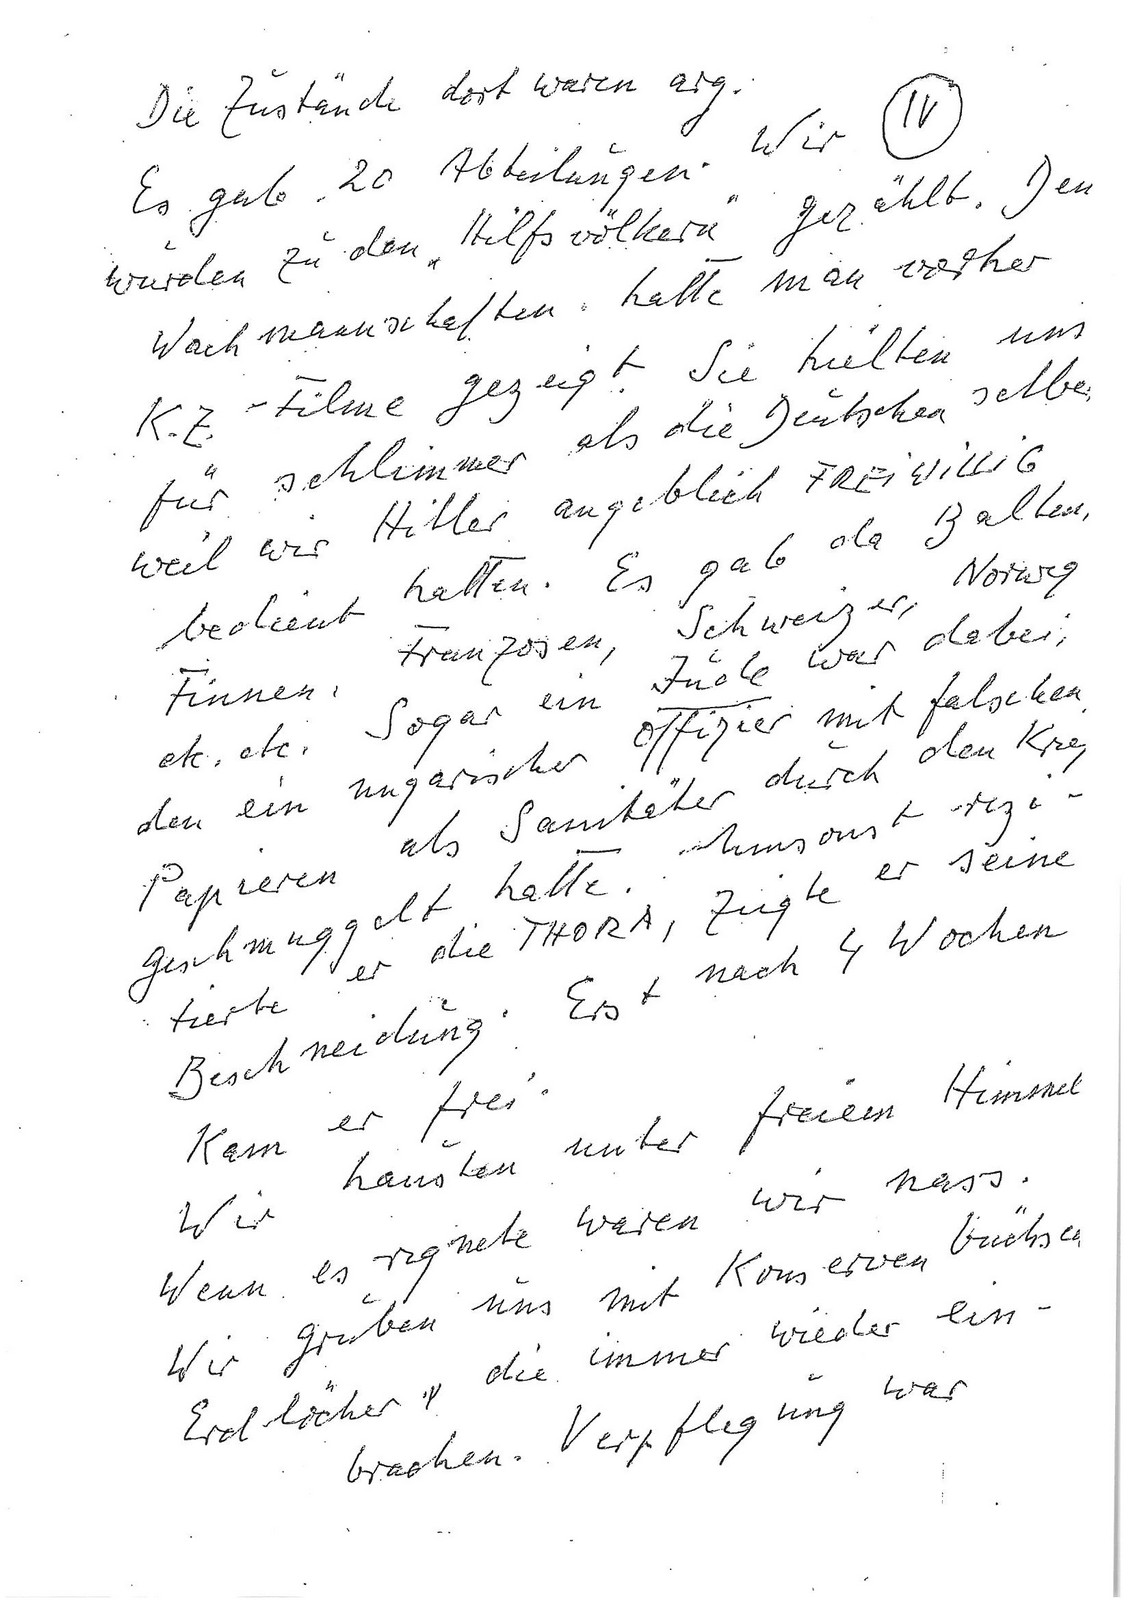 Die Zustände dort waren arg.
IV
Es gab 20 Abteilungen. Wir
wurden zu den „Hilfsvölkern" gezählt. Den
Wachmannschaften hatte man vorher
K.Z.-Filme gezeigt. Sie hielten uns
für schlimmer als die Deutschen selber
weil wir Hitler angeblich FREIWILLIG
bedient hatten. Es gab da Balten,
Finnen, Franzosen, Schweizer, Norweg
etc. etc. Sogar ein Jude war dabei,
den ein ungarischer Offizier mit falschen
Papieren als Sanitäter durch den Krieg
geschmuggelt hatte. Umsonst rezi-
tierte er die THORA, zeigte er seine
Beschneidung. Erst nach 4 Wochen
Kam er frei.
Wir hausten unter freiem Himmel
Wenn es regnete waren wir nass.
Wir gruben uns mit Konservenbüchsen
Erdlöcher die immer wieder ein-
brachen. Verpflegung war